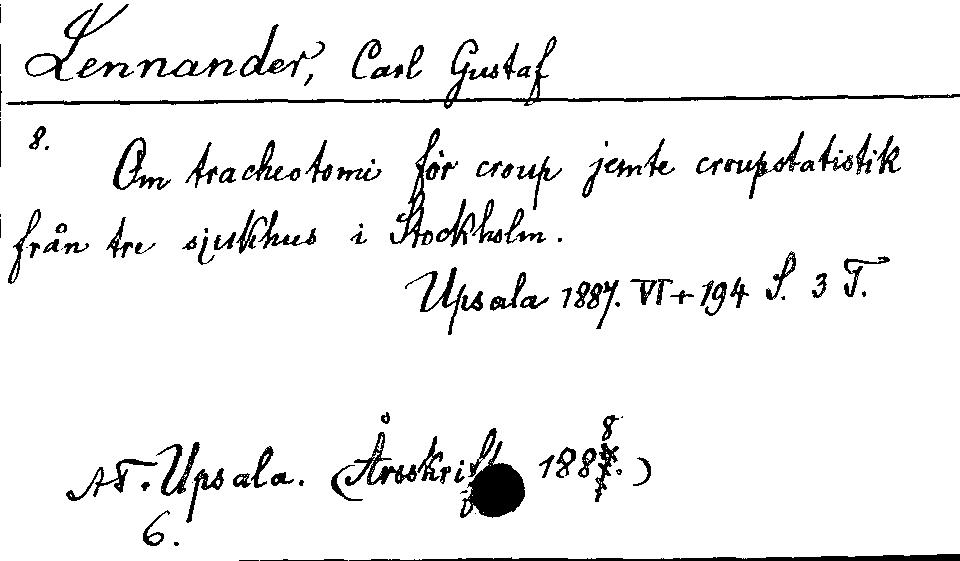 Lennander, Carl Gustaf
8.
Om tracheotomi för croup jemte croupstatistik
från tre sjukhus i Stockholm.
Upsala 1887. VI + 194 S. 3 T.
AT. Upsala. (Årsskrift 1888.)
6.